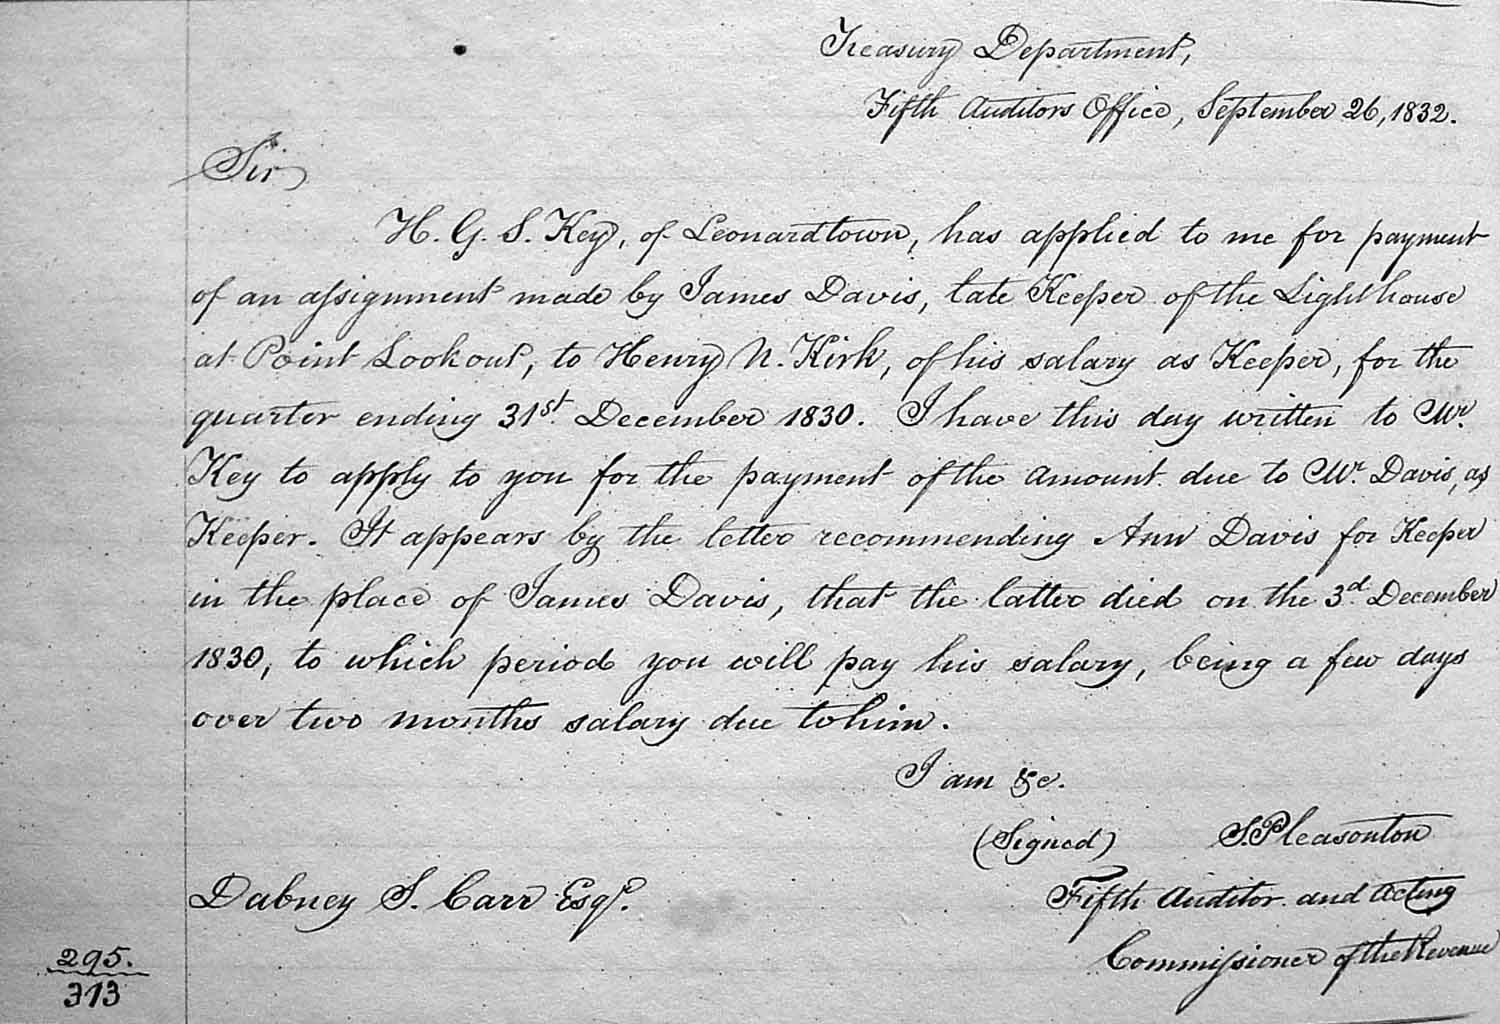 Treasury Department,
Fifth Auditors Office, September 26, 1832.
Sir
H. G. S. Key, of Leonardtown, has applied to me for payment
of an assignment made by James Davis, late Keeper of the Lighthouse
at Point Lookout, to Henry N. Kirk, of his salary as Keeper, for the
quarter ending 31st December 1830. I have this day written to Mr.
Key to apply to you for the payment of the amount due to Mr. Davis, as
Keeper. It appears by the letter recommending Ann Davis for Keeper
in the place of James Davis, that the latter died on the 3d December
1830, to which period you will pay his salary, being a few days
over two months salary due to him.
I am &c.
(Signed) S. Pleasonton
Dabney S. Carr Esqr. Fifth Auditor and Acting
Commissioner of the Revenue
295.
313